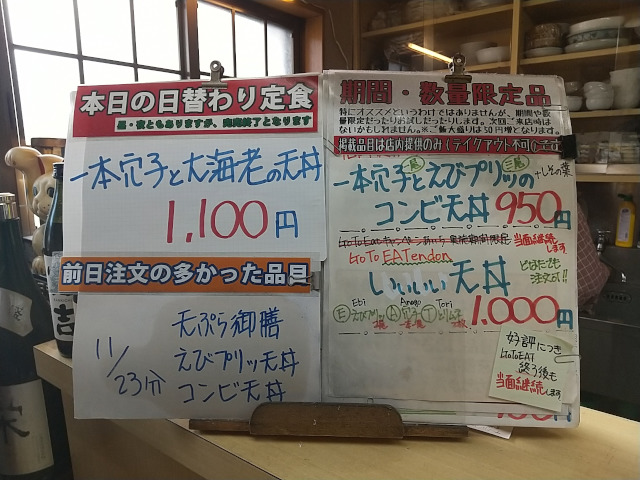 本日の日替わり定食
昼・夜ともありますが、完売終了となります
一本穴子と大海老の天丼
1,100円
前日注文の多かった品目
11/23分
天ぷら御膳
えびプリッ天丼
コンビ天丼
期間・数量限定品
特にオススメというわけではありませんが、期間や数
量限定だったりお試しだったりします。次回ご来店時は
ないかもしれません。※ご飯大盛りは50円増となります。
掲載品目は店内提供のみ(テイクアウト不可)です
一本穴子とえびプリッの
+しその葉
コンビ天丼 950円
GoToEatキャンペーン
当面継続します
GoTo EATendon
どなたでも
注文可!!
いいい天丼
1.000円
Ebi Anago Tori
E えびプリッ A 穴子 T とり
好評につき
GoToEAT
終了後も
当面継続します